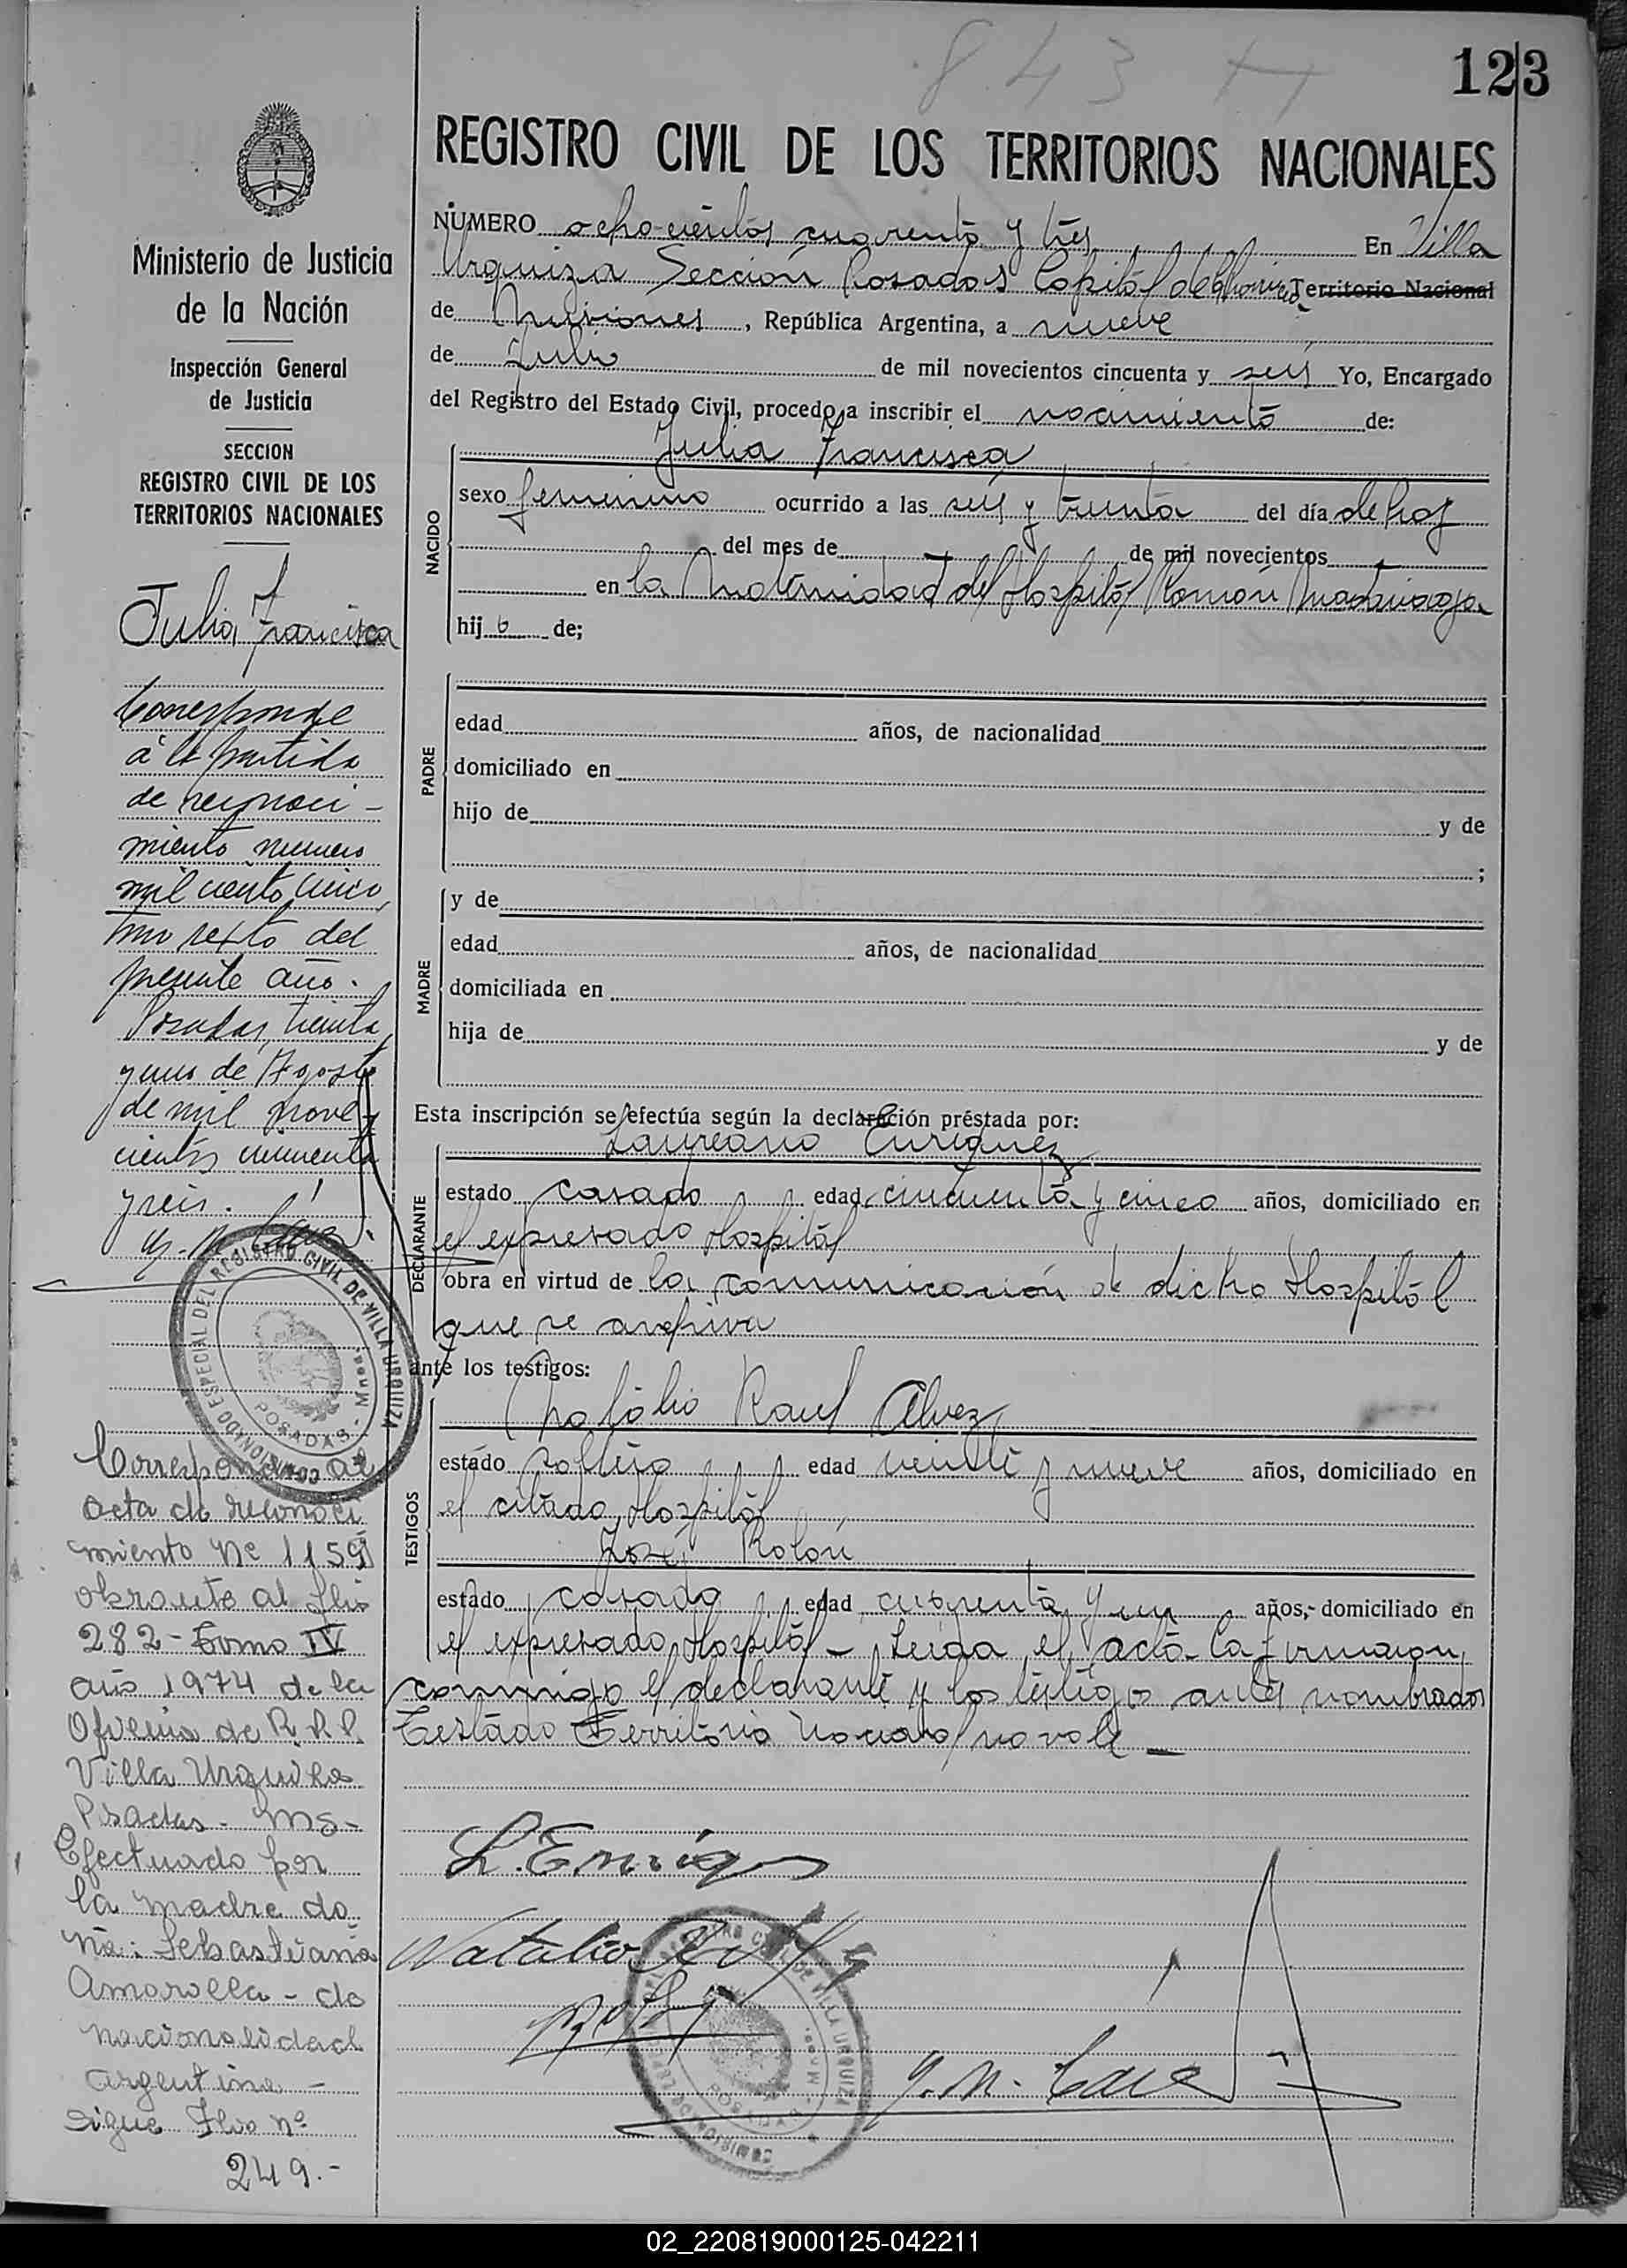 843
123
REGISTRO CIVIL DE LOS TERRITORIOS NACIONALES
NUMERO ochocientos cuarenta y tres En Villa
Urquiza Sección Posadas Capital de Territorio Nacional
de Misiones, República Argentina, a nueve
de Julio de mil novecientos cincuenta y seis Yo, Encargado
del Registro del Estado Civil, procedo a inscribir el nacimiento de:
NACIDO
Julia Francisca
sexo femenino ocurrido a las seis y treinta del día de hoy
del mes de de mil novecientos
en la Maternidad del Hospital Ramón Madariaga
hij a de;
PADRE
edad años, de nacionalidad
domiciliado en
hijo de y de
;
MADRE
y de
edad años, de nacionalidad
domiciliada en
hija de y de
Esta inscripción se efectúa según la declaración prestada por:
DECLARANTE
Laureano Enriquez
estado casado edad cincuenta y cinco años, domiciliado en
el expresado Hospital
obra en virtud de la comunicación de dicho Hospital
que se archiva
ante los testigos:
TESTIGOS
Natalio Raul Alvez
estado soltero edad veinte y nueve años, domiciliado en
el citado Hospital
José Rolón
estado casado edad cuarenta y un años, domiciliado en
el expresado Hospital - Leida el acta la firmaron
conmigo el declarante y los testigos antes nombrados
Testado Territorio Nacional no vale -
L. Enriq
Natalio
Ministerio de Justicia
de la Nación
Inspección General
de Justicia
SECCION
REGISTRO CIVIL DE LOS
TERRITORIOS NACIONALES
Julia Francisca
Corresponde
á la partida
de reconoci-
miento numero
mil ciento cinco
del
presente año.
Posadas, treinta
y uno de Agosto
de mil nove
cientos cincuenta
y seis.
COMISIONADO ESPECIAL DEL REGISTRO CIVIL DE VILLA URQUIZA
POSADAS - Mnes.
Corresponde al
acta de reconoci
miento Nº 1159
obrante al flio
282 - Tomo IV
año 1974 de la
Oficina de R.P.P.
Villa Urquiza
Posadas - Ms -
Efectuado por
la madre do
ña: Sebastiana
Amarolla - de
nacionalidad
argentina -
sigue Flio nº
249.-
02_220819000125-042211